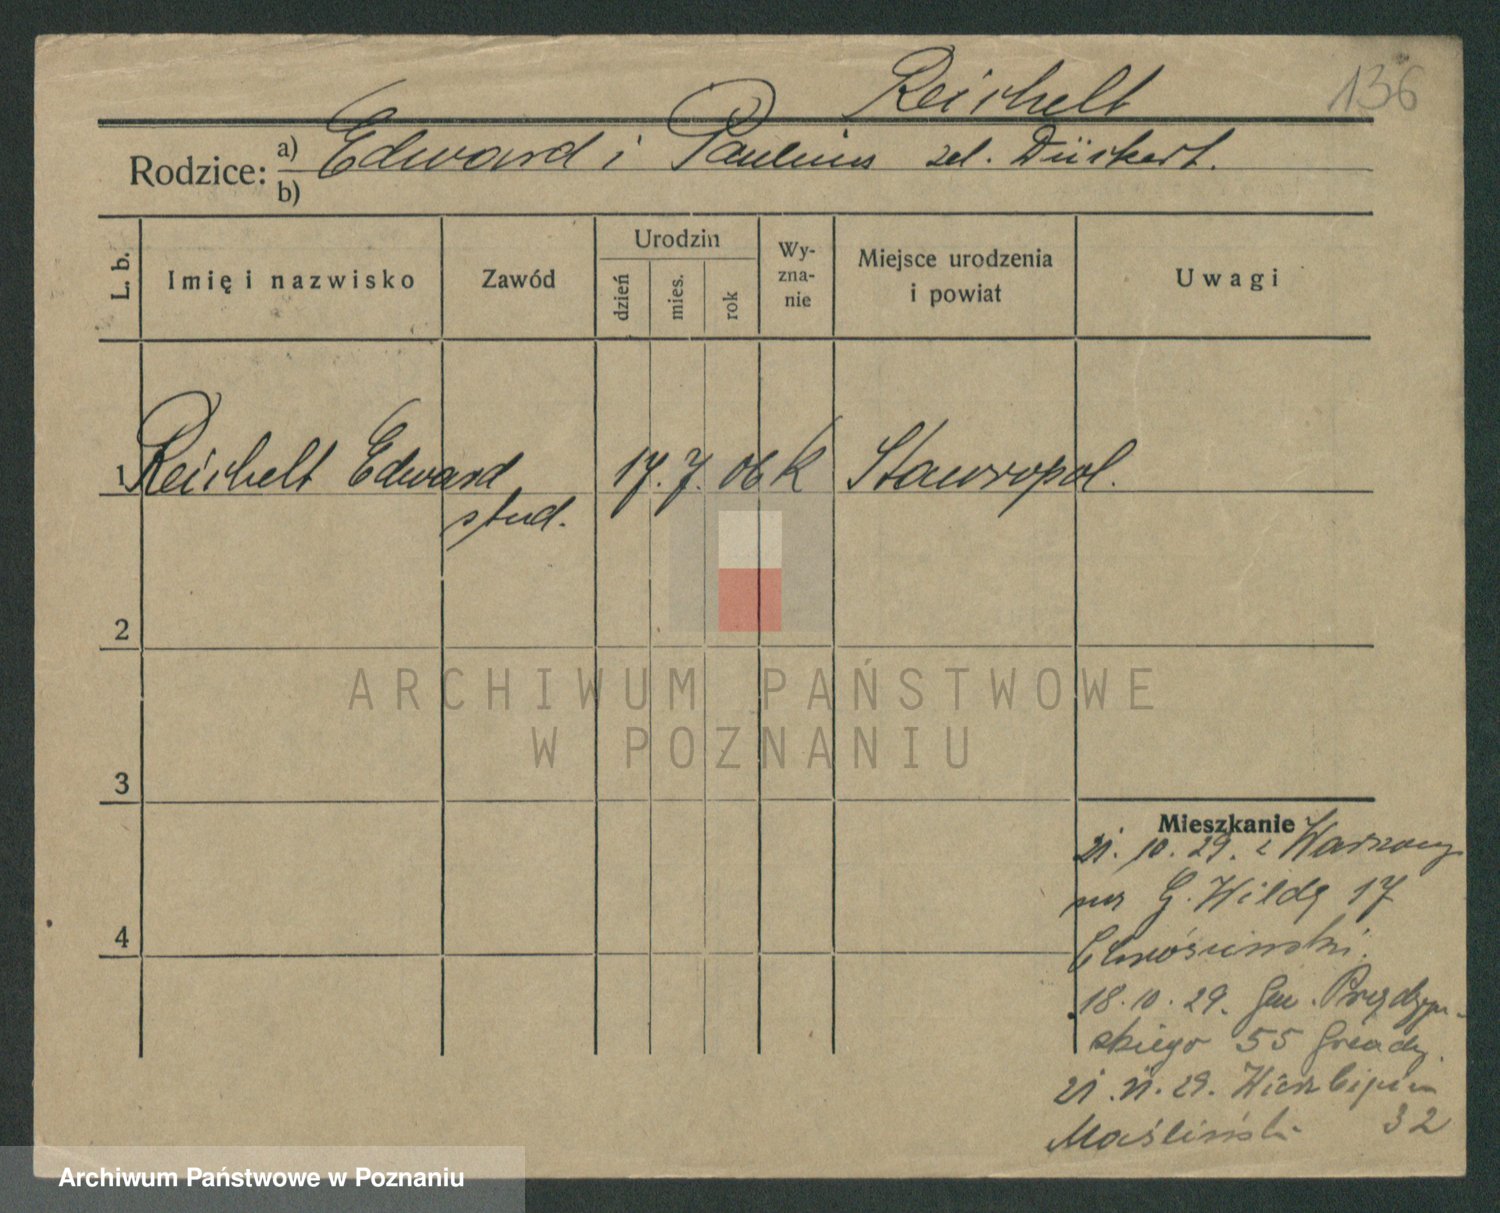 Reichelt
136
Rodzice: a) Edward i Paulina zd. Dückert.
b)
L. b.
Imię i nazwisko
Zawód
Urodzin
dzień
mies.
rok
Wy-
zna-
nie
Miejsce urodzenia
i powiat
Uwagi
1 Reichelt Edward 17. 7. 06 K Stawropol.
stud.
2
ARCHIWUM PAŃSTWOWE
W POZNANIU
3
Mieszkanie
10. 29. z Warszawy
na G. Wildę 17
4
18. 10. 29. Gen. Prądzyń-
skiego 55
21. 11. 29. Wierzbięcice
Maśliński 32
Archiwum Państwowe w Poznaniu